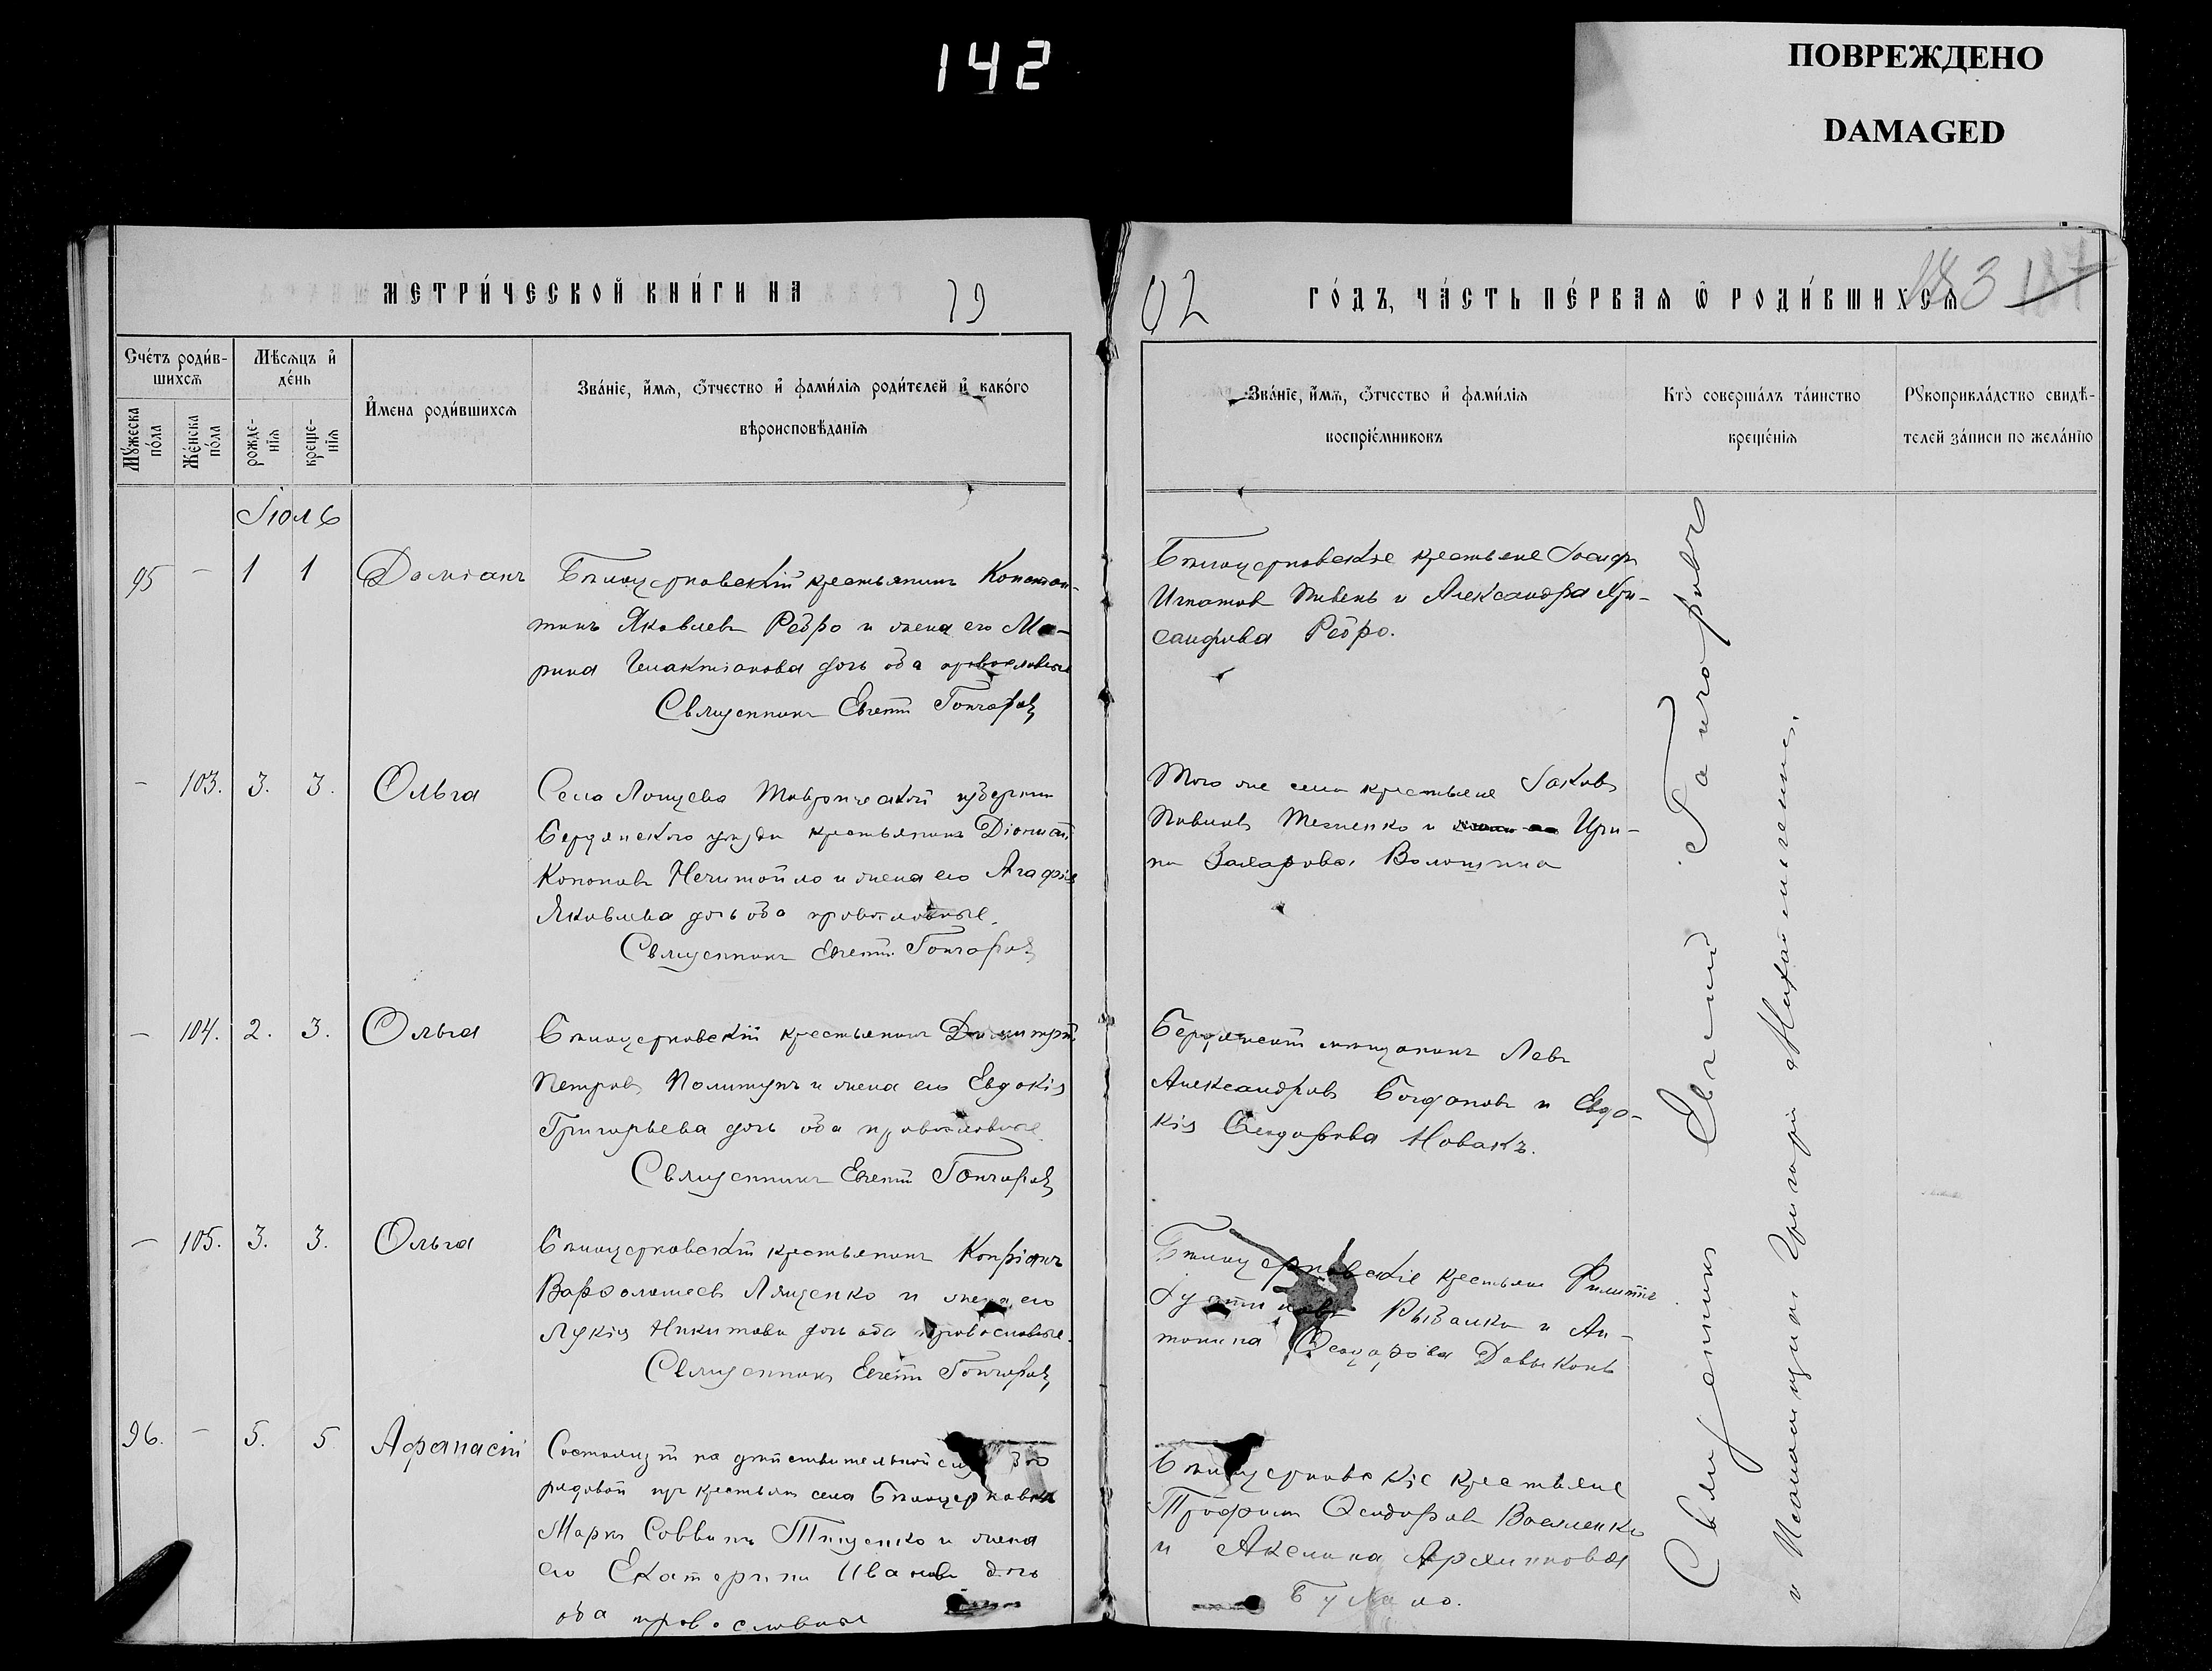 142
ПОВРЕЖДЕНО
DAMAGED
МЕТРИ́ЧЕСКОЙ КНИ́ГИ НА 19
02 ГО́ДЪ, ЧА́СТЬ ПЕ́РВАЯ Ѡ РОДИ́ВШИХСЯ
183
Счéтъ роди́в-
шихся
Мѣсяцъ и
де́нь
Мꙋ́жеска
по́ла
Же́нска
по́ла
рожде-
нія
креще-
нія
И́мена роди́вшихся
Зва́нїе, и́мя, ѻ́тчество и фами́лїя роди́телей и како́го
вѣроисповѣ́данїя
Зва́нїе, и́мя, ѻ́тчество и фами́лїя
воспрїе́мниковъ
Кто̀ соверша́лъ та́инство
креще́нїя
Рꙋкоприкла́дство свидѣ́-
телей за́писи по жела́нїю
Іюль
95 - 1 1 Даміанъ
Бѣлоцерковскій крестьянинъ Констан-
тинъ Яковлевъ Ребро и жена его Ма-
рина Галактіонова дочь оба православные
Священникъ Евгеній Гончаровъ
Бѣлоцерковскіе крестьяне Іосифъ
Игнатовъ Пивень и Александра Хри-
санфова Ребро.
- 103. 3. 3. Ольга
Села Таврической губерніи
Бердянскаго уѣзда крестьянинъ Діонисій
Кононовъ Нечитайло и жена его Агафія
Яковлева дочь оба православные.
Священникъ Евгеній Гончаровъ
Того же села крестьяне Іаковъ
Павловъ и Ири-
на Захарова Волошина
- 104. 2. 3. Ольга
Бѣлоцерковскій крестьянинъ Димитрій
Петровъ и жена его Евдокія
Григорьева дочь оба православные
Священникъ Евгеній Гончаровъ
Бердянскій мѣщанинъ Левъ
Александровъ Богдановъ и Евдо-
кія Ѳеодорова Новакъ.
- 105. 3. 3. Ольга
Бѣлоцерковскій крестьянинъ
Варѳоломеевъ Лященко и жена его
Лукія Никитова дочь оба православные.
Священникъ Евгеній Гончаровъ
Бѣлоцерковскіе крестьяне Филиппъ
и Ан-
тонина Ѳеодорова
96. - 5. 5 Афанасій
Состоящій на дѣйствительной
рядовой изъ крестьянъ села Бѣлоцерковки
Марка Саввинъ Тищенко и жена
его Екатерина Иванова дочь
оба православные
Бѣлоцерковскіе крестьяне
Трофимъ Ѳеодоровъ Василенко
и Акелина Архиппова
Священникъ Евгеній Гончаровъ
и Псаломщикъ Григорій